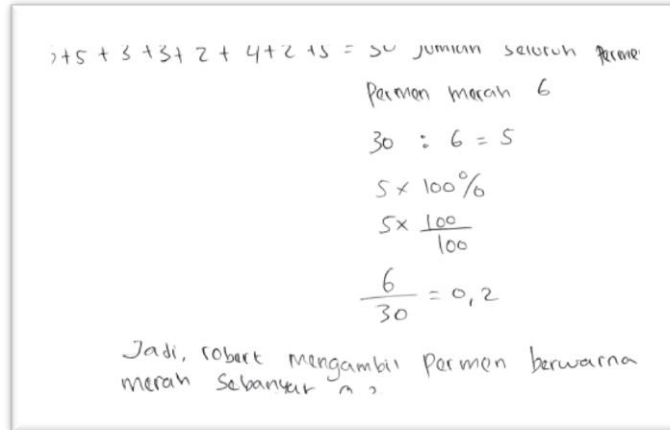 +5 + 3 + 3 + 2 + 4 + 2 + 5 = 30 jumlah seluruh
Permen merah 6
30 : 6 = 5
5 x 100%
5 x 100/100
6/30 = 0,2
Jadi, robert mengambil Permen berwarna
merah sebanyak